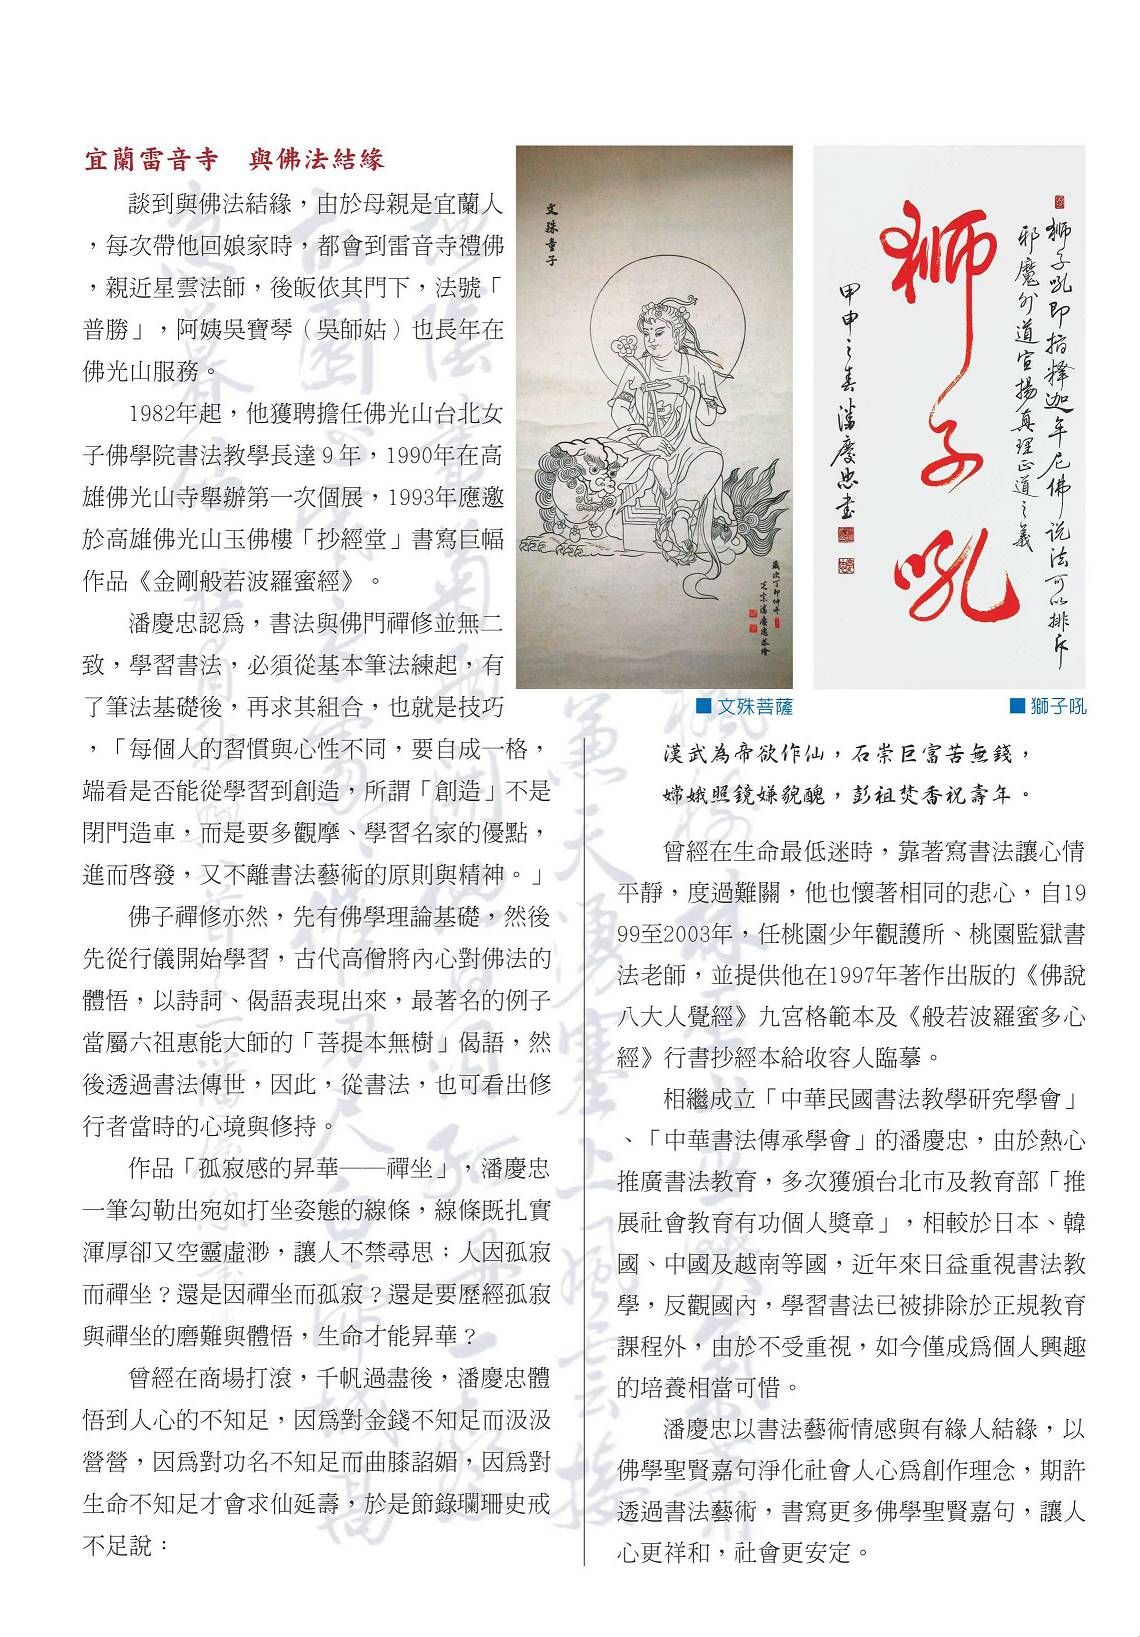 宜蘭雷音寺　與佛法結緣
談到與佛法結緣，由於母親是宜蘭人
，每次帶他回娘家時，都會到雷音寺禮佛
，親近星雲法師，後皈依其門下，法號「
普勝」，阿姨吳寶琴（吳師姑）也長年在
佛光山服務。
1982年起，他獲聘擔任佛光山台北女
子佛學院書法教學長達９年，1990年在高
雄佛光山寺舉辦第一次個展，1993年應邀
於高雄佛光山玉佛樓「抄經堂」書寫巨幅
作品《金剛般若波羅蜜經》。
潘慶忠認為，書法與佛門禪修並無二
致，學習書法，必須從基本筆法練起，有
了筆法基礎後，再求其組合，也就是技巧
，「每個人的習慣與心性不同，要自成一格，
端看是否能從學習到創造，所謂「創造」不是
閉門造車，而是要多觀摩、學習名家的優點，
進而啓發，又不離書法藝術的原則與精神。」
佛子禪修亦然，先有佛學理論基礎，然後
先從行儀開始學習，古代高僧將內心對佛法的
體悟，以詩詞、偈語表現出來，最著名的例子
當屬六祖惠能大師的「菩提本無樹」偈語，然
後透過書法傳世，因此，從書法，也可看出修
行者當時的心境與修持。
作品「孤寂感的昇華——禪坐」，潘慶忠
一筆勾勒出宛如打坐姿態的線條，線條既扎實
渾厚卻又空靈虛渺，讓人不禁尋思：人因孤寂
而禪坐？還是因禪坐而孤寂？還是要歷經孤寂
與禪坐的磨難與體悟，生命才能昇華？
曾經在商場打滾，千帆過盡後，潘慶忠體
悟到人心的不知足，因為對金錢不知足而汲汲
營營，因為對功名不知足而曲膝諂媚，因為對
生命不知足才會求仙延壽，於是節錄瓓珊史戒
不足說：
文殊童子
歲次丁卯仲冬
芝宗潘慶忠恭繪
■ 文殊菩薩
獅子吼即指釋迦牟尼佛說法可以排斥
邪魔外道宣揚真理正道之義
獅子吼
甲申之春潘慶忠書
■ 獅子吼
漢武為帝欲作仙，石崇巨富苦無錢，
嫦娥照鏡嫌貌醜，彭祖焚香祝壽年。
曾經在生命最低迷時，靠著寫書法讓心情
平靜，度過難關，他也懷著相同的悲心，自19
99至2003年，任桃園少年觀護所、桃園監獄書
法老師，並提供他在1997年著作出版的《佛說
八大人覺經》九宮格範本及《般若波羅蜜多心
經》行書抄經本給收容人臨摹。
相繼成立「中華民國書法教學研究學會」
、「中華書法傳承學會」的潘慶忠，由於熱心
推廣書法教育，多次獲頒台北市及教育部「推
展社會教育有功個人獎章」，相較於日本、韓
國、中國及越南等國，近年來日益重視書法教
學，反觀國內，學習書法已被排除於正規教育
課程外，由於不受重視，如今僅成為個人興趣
的培養相當可惜。
潘慶忠以書法藝術情感與有緣人結緣，以
佛學聖賢嘉句淨化社會人心為創作理念，期許
透過書法藝術，書寫更多佛學聖賢嘉句，讓人
心更祥和，社會更安定。